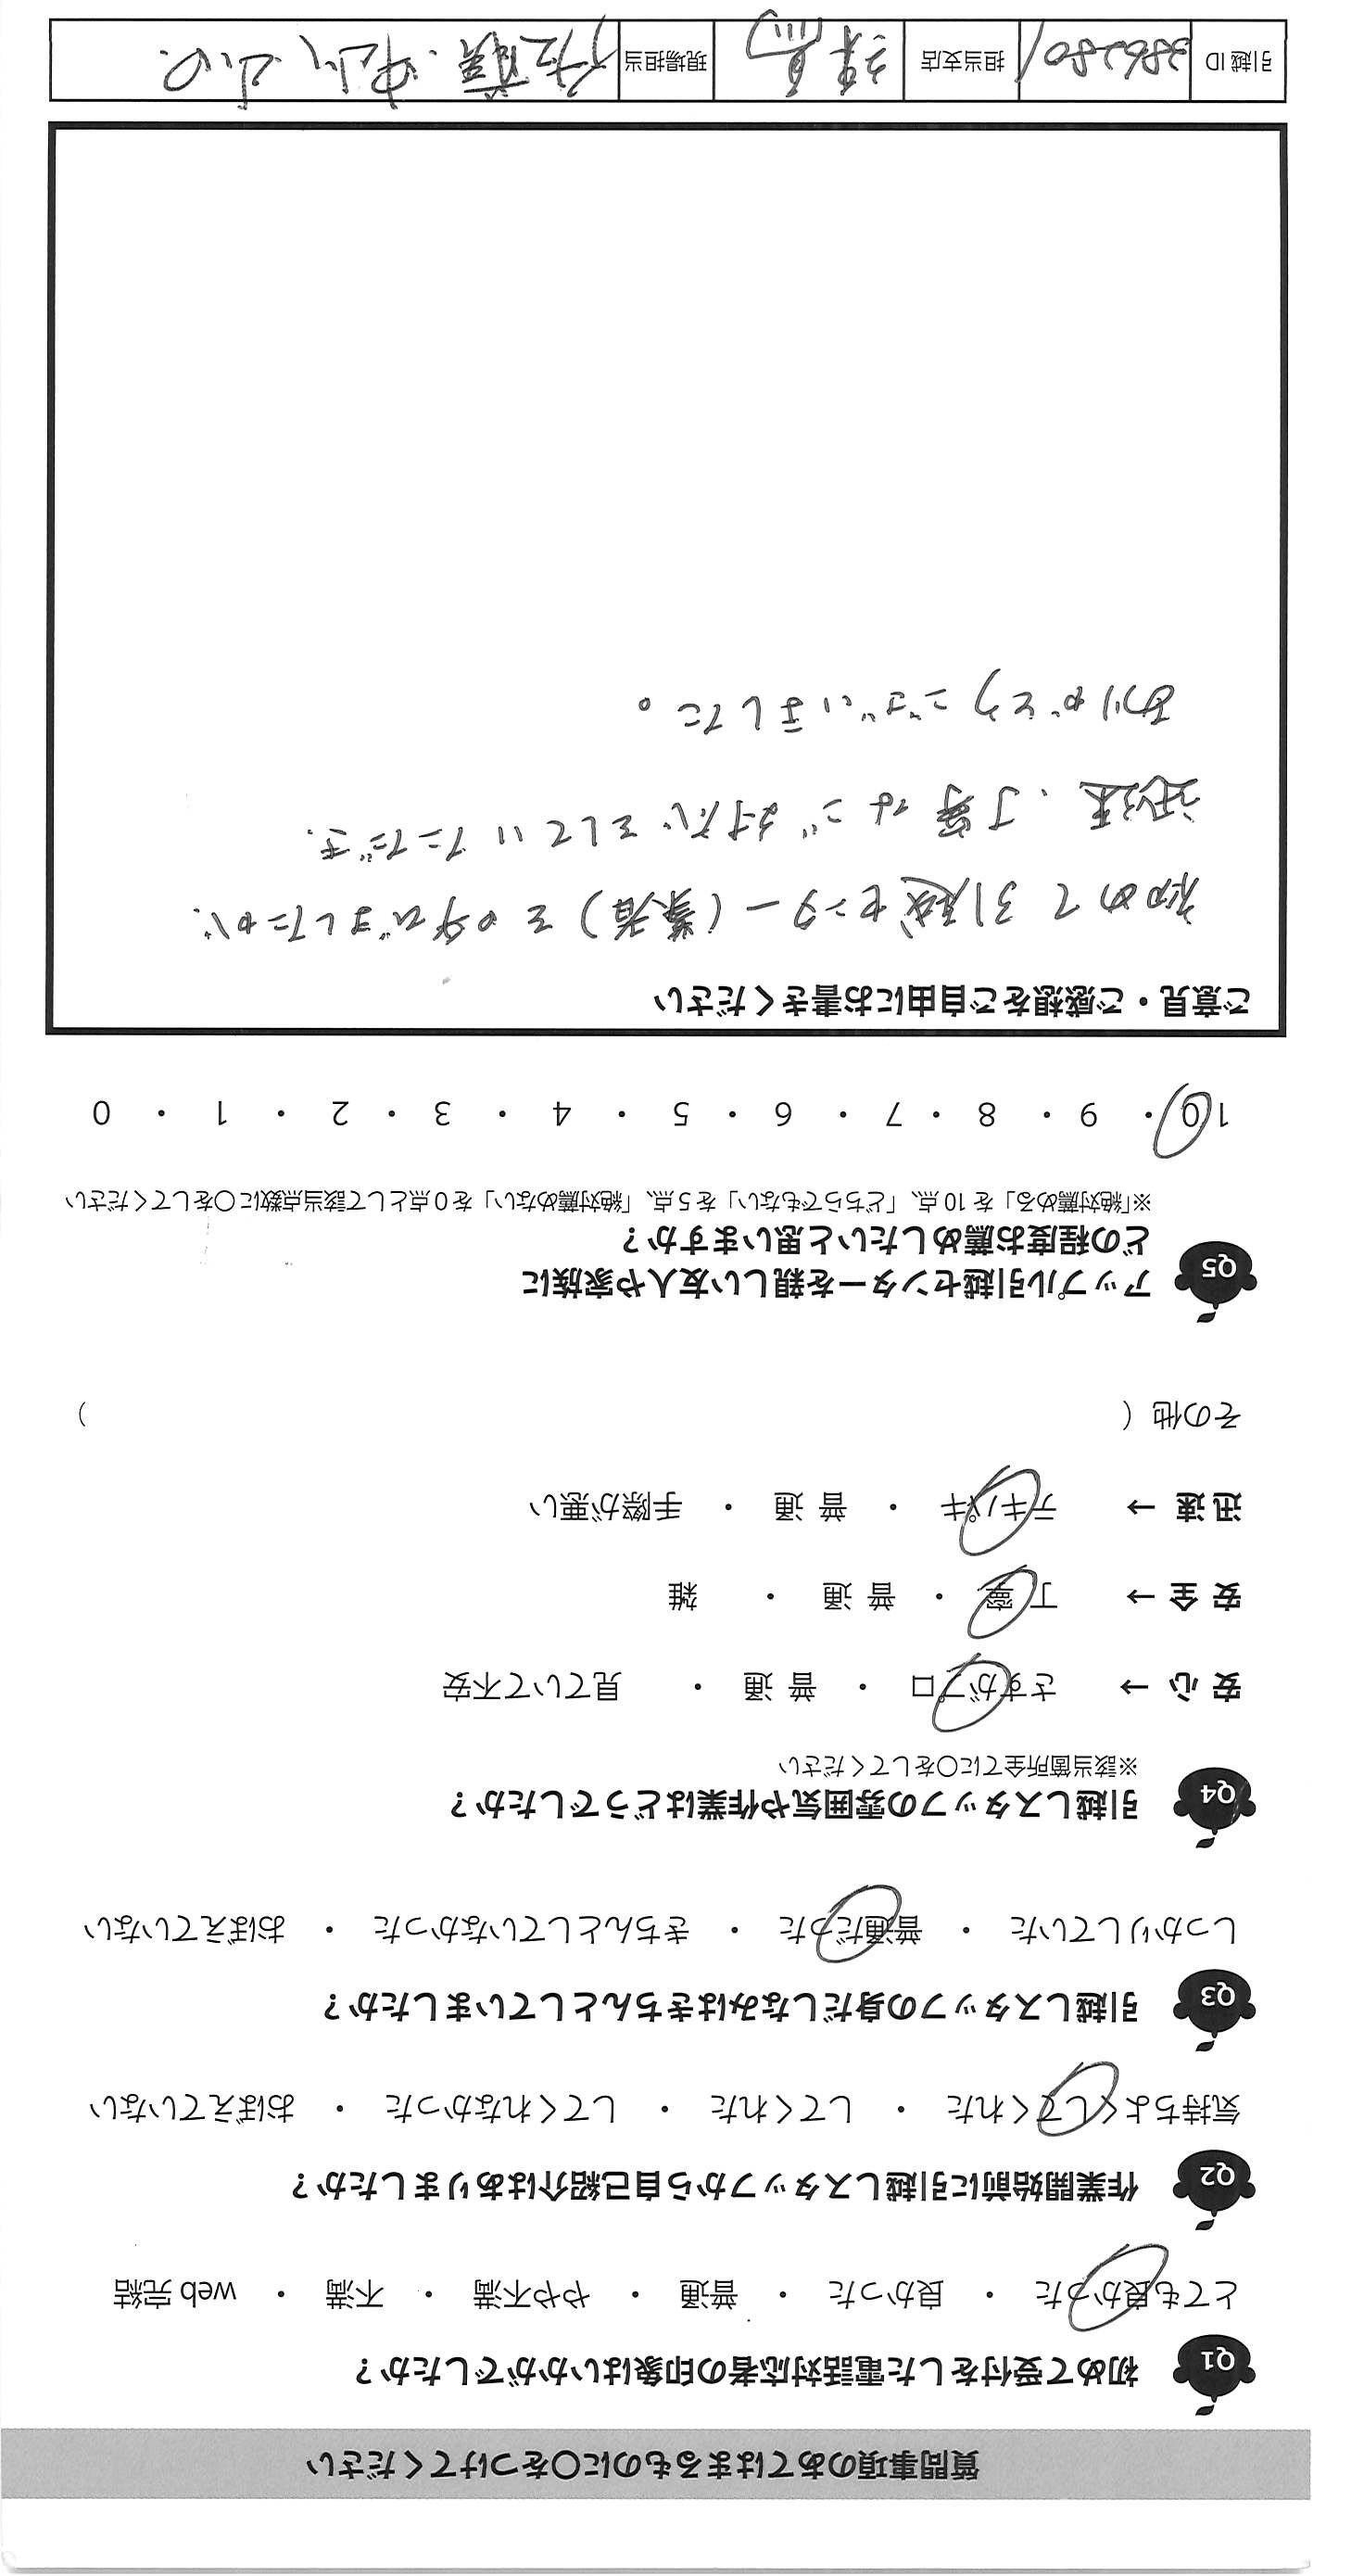 質問事項のあてはまるものに○をつけてください
Q1 初めて受付をした電話対応者の印象はいかがでしたか？
とても良かった ・ 良かった ・ 普通 ・ やや不満 ・ 不満 ・ web 完結
Q2 作業開始前に引越しスタッフから自己紹介はありましたか？
気持ちよくしてくれた ・ してくれた ・ してくれなかった ・ おぼえていない
Q3 引越しスタッフの身だしなみはきちんとしていましたか？
しっかりしていた ・ 普通だった ・ きちんとしていなかった ・ おぼえていない
Q4 引越しスタッフの雰囲気や作業はどうでしたか？
※該当箇所全てに○をしてください
安 心 → さすがプロ ・ 普 通 ・ 見ていて不安
安 全 → 丁 寧 ・ 普 通 ・ 雑
迅 速 → テキパキ ・ 普 通 ・ 手際が悪い
その他（ ）
Q5 アップル引越センターを親しい友人や家族に
どの程度お薦めしたいと思いますか？
※「絶対薦める」を 10 点、「どちらでもない」を 5 点、「絶対薦めない」を 0 点として該当点数に○をしてください
10 ・ 9 ・ 8 ・ 7 ・ 6 ・ 5 ・ 4 ・ 3 ・ 2 ・ 1 ・ 0
ご意見・ご感想をご自由にお書きください
初めて引越センター（業者）をの
迅速、丁寧なご対応をしていただき、
ありがとうございました。
引越 ID 3862801 担当支店 現場担当